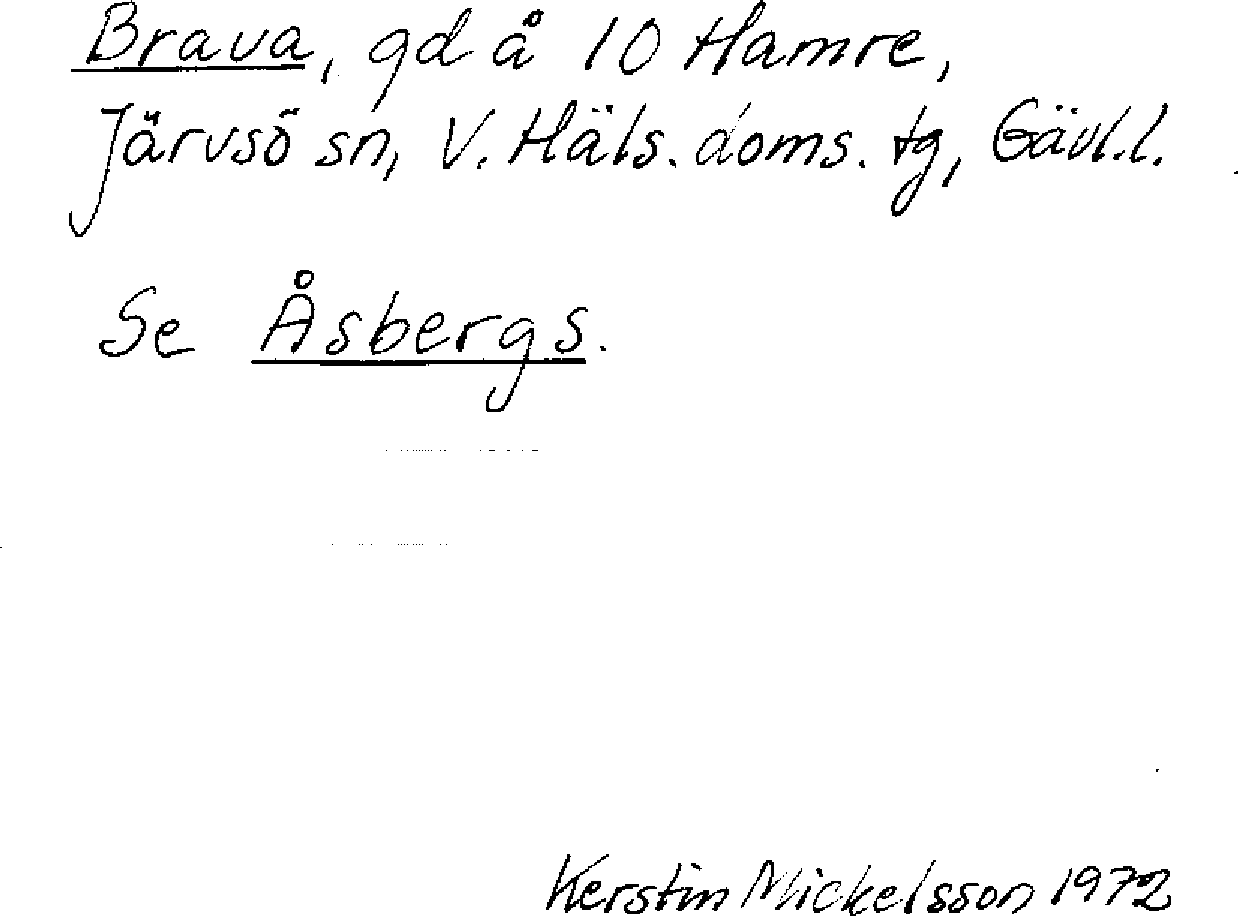 Brava, gd å 10 Hamre,
Järvsö sn, V. Häls. doms. tg, Gävl.l.
Se Åsbergs.
Kerstin Mickelsson 1972